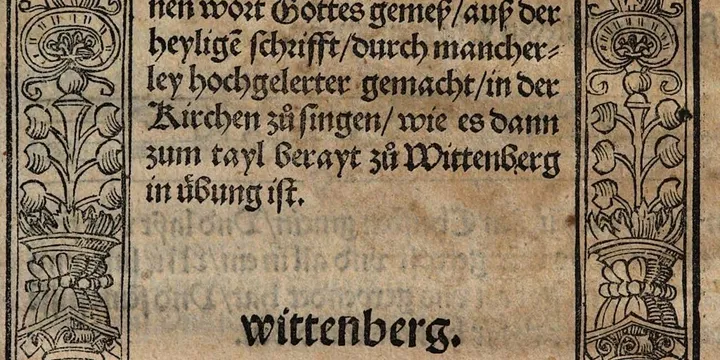 nen wort Gottes gemeß/auß der
heyligẽ schrifft/durch mancher⸗
ley hochgelerter gemacht/in der
Kirchen zůsingen/ wie es dann
zum tayl berayt zů Wittenberg
in übung ist.
wittenberg.